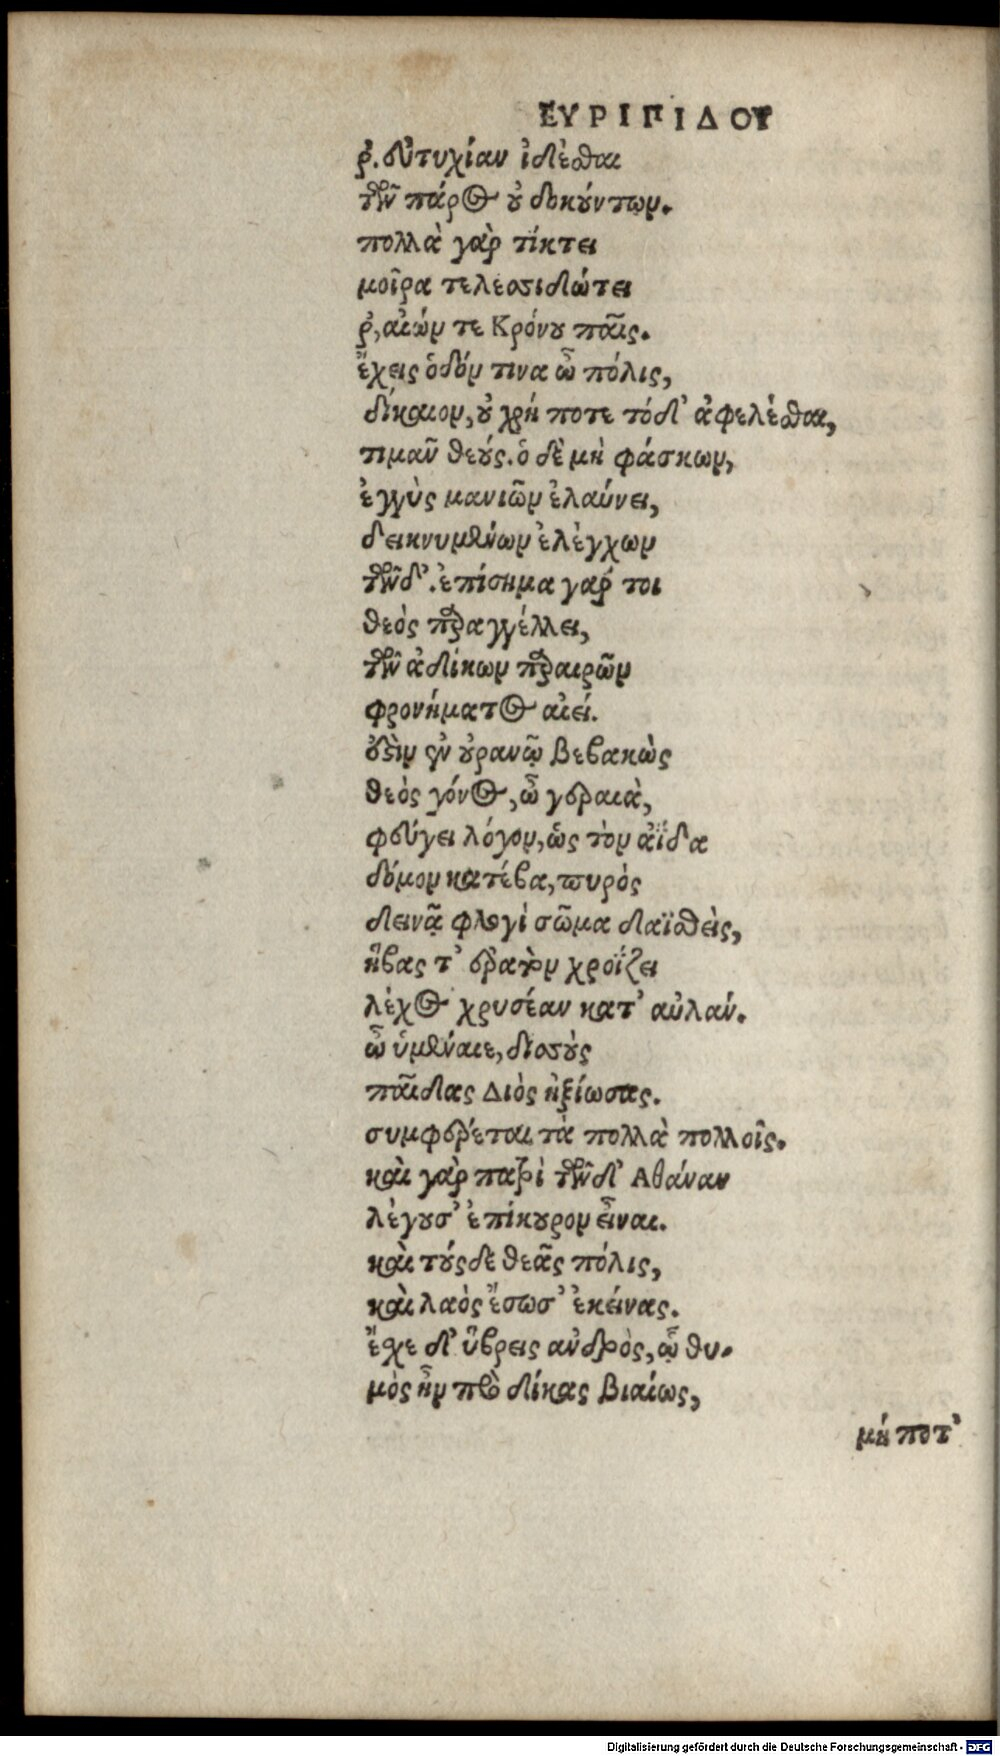 ΕΥΡΙΠΙΔΟΥ
ρ'. εὐτυχίαν ἰδέσθαι
τῶν πάρος οὐ δοκούντων.
πολλὰ γὰρ τίκτει
μοῖρα τελεσσιδώτει
ρ', αἰών τε Κρόνου παῖς.
ἔχεις ὁδόν τινα ὦ πόλις,
δίκαιον, οὐ χρή ποτε τόδ' ἀφελέσθαι,
τιμᾶν θεούς. ὁ δὲ μὴ φάσκων,
ἐγγὺς μανιῶν ἐλαύνει,
δεικνυμένων ἐλέγχων
τῶνδ'. ἐπίσημα γάρ τοι
θεὸς παραγγέλλει,
τῶν ἀδίκων παραιρῶν
φρονήματος αἰεί.
οὐδεὶν ἐν οὐρανῷ βεβακὼς
θεὸς γόνος, ὦ γεραιὰ,
φεύγει λόγον, ὡς τὸν ἀΐδα
δόμον κατέβα, πυρὸς
δεινᾷ φλογὶ σῶμα δαϊσθεὶς,
ἥβας τ' ἐρατὸν χροΐζει
λέχος χρυσέαν κατ' αὐλάν.
ὦ ὑμέναιε, δισσοὺς
παῖδας Διὸς ἠξίωσας.
συμφέρεται τὰ πολλὰ πολλοῖς.
καὶ γὰρ πατρὶ τῶνδ' Αθάναν
λέγουσ' ἐπίκουρον εἶναι.
καὶ τούςδε θεᾶς πόλις,
καὶ λαὸς ἔσωσ' ἐκείνας.
ἔχε δ' ὕβρεις ἀνδρὸς, ᾧ θυ-
μὸς ἦν πρὸ δίκας βιαίως,
μή ποτ'
Digitalisierung gefördert durch die Deutsche Forschungsgemeinschaft - DFG